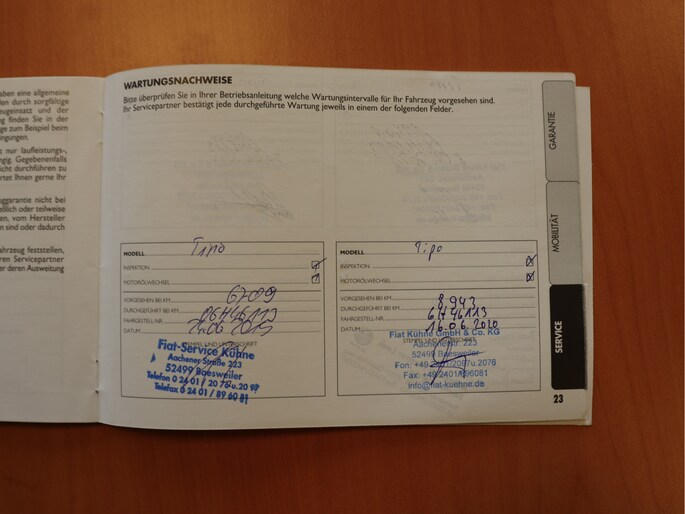 aben eine allgemeine
len durch sorgfältige
eugeinsatz und der
g finden Sie in der
ge zum Beispiel beim
ingungen.
t nur laufleistungs-,
ngig. Gegebenenfalls
icht durchführen zu
rtet Ihnen gerne Ihr
ggarantie nicht bei
eßlich oder teilweise
en, vom Hersteller
n sind oder dadurch
ahrzeug feststellen,
ren Servicepartner
er deren Ausweitung
WARTUNGSNACHWEISE
Bitte überprüfen Sie in Ihrer Betriebsanleitung welche Wartungsintervalle für Ihr Fahrzeug vorgesehen sind.
Ihr Servicepartner bestätigt jede durchgeführte Wartung jeweils in einem der folgenden Felder.
MODELL Tipo
INSPEKTION
MOTORÖLWECHSEL
VORGESEHEN BEI KM
DURCHGEFÜHRT BEI KM 6709
FAHRGESTELL-NR. 06H46113
DATUM 24.06.2019
STEMPEL UND UNTERSCHRIFT
Fiat-Service Kühne
Aachener Straße 223
52499 Baesweiler
Telefon 0 24 01 / 20 78 u. 20 97
Telefax 0 24 01 / 89 60 81
MODELL Tipo
INSPEKTION
MOTORÖLWECHSEL
VORGESEHEN BEI KM
DURCHGEFÜHRT BEI KM 8.943
FAHRGESTELL-NR. 6H46113
DATUM 16.06.2020
STEMPEL UND UNTERSCHRIFT
Fiat Kühne GmbH & Co. KG
Aachener Str. 223
52499 Baesweiler
Fon: +49 2401/2097u.2078
Fax: +49 2401/896081
info@fiat-kuehne.de
GARANTIE
MOBILITÄT
SERVICE
23